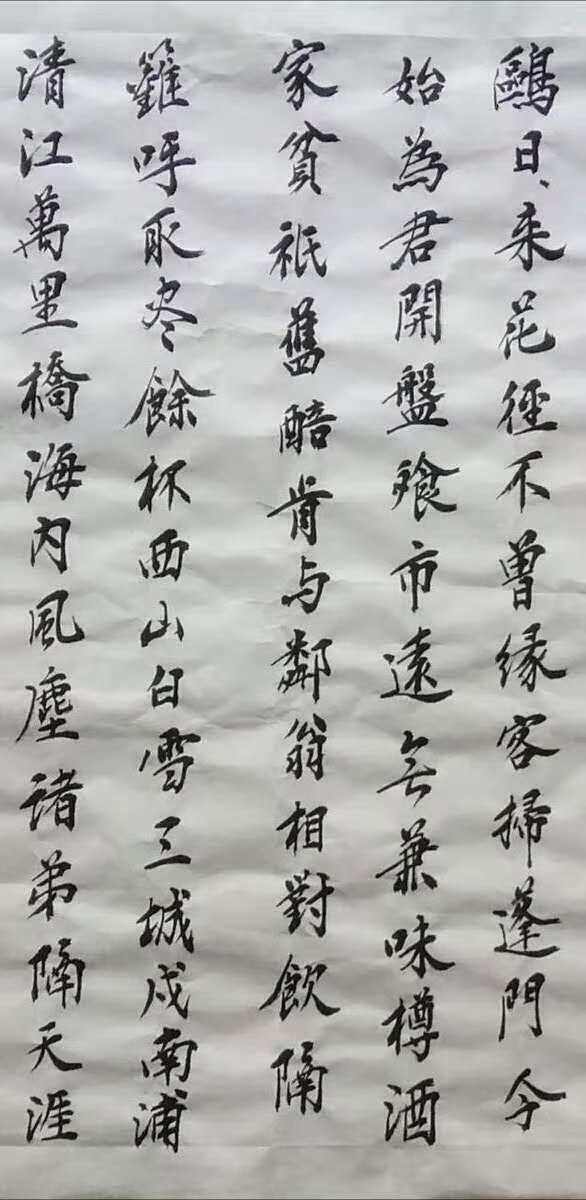 鷗日、来花徑不曾緣客掃蓬門今
始為君開盤飧市遠無兼味樽酒
家貧祇舊醅肯与鄰翁相對飲隔
籬呼取尽餘杯西山白雪三城戍南浦
清江萬里橋海内風塵諸弟隔天涯